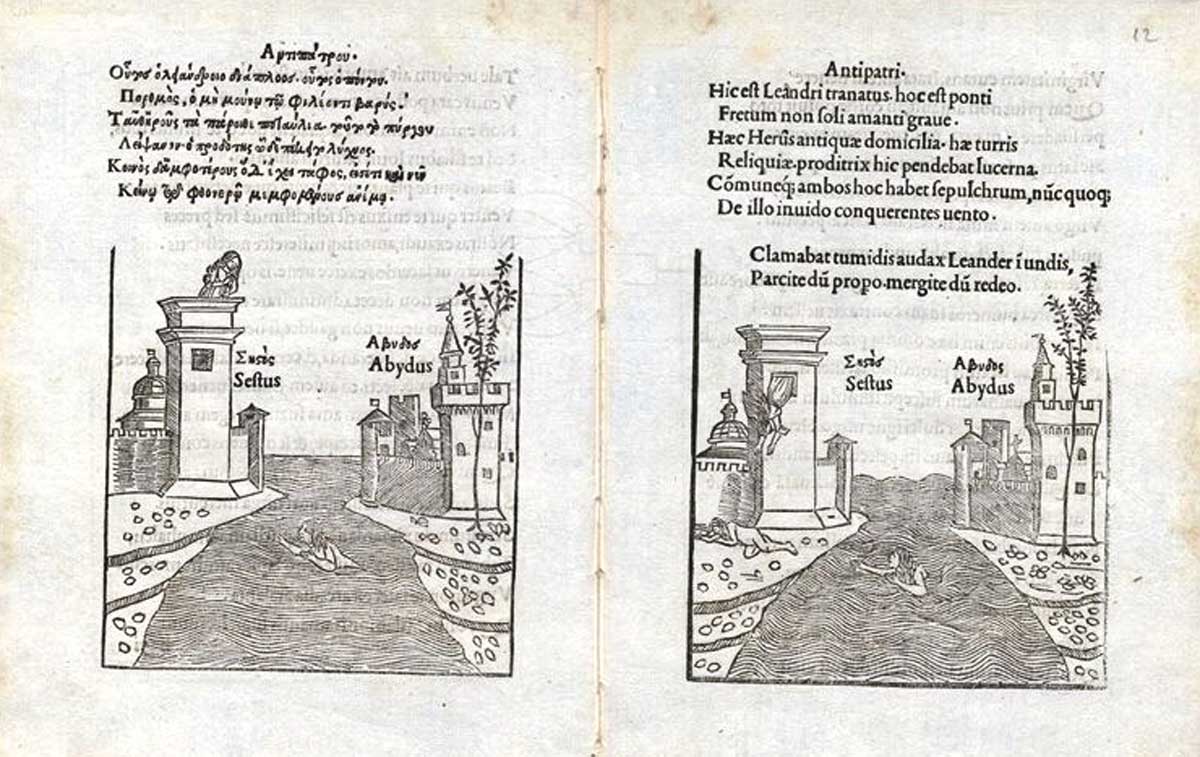 Ἀντιπάτρου.
Οὗτος ὁ λειάνδροιο διάπλοος. οὗτος ὁ πόντου
Πορθμὸς, ὁ μὴ μούνῳ τῷ φιλέοντι βαρύς.
Ταῦθ' ἡροῦς τὰ πάροιθεν ἐπαύλια. τοῦτο τὸ πύργου
Λείψανον. ὁ προδότης ὧδ' ἐπέκειτο λύχνος.
Κοινὸς δ' ἀμφοτέρους ὅδ' ἔχει τάφος, εἰσέτι καὶ νῦν
Κείνῳ τῷ φθονερῷ μεμφομένους ἀνέμῳ.
Σηστὸς
Sestus
Ἄβυδος
Abydus
12
Antipatri.
Hic est Leandri tranatus. hoc est ponti
Fretum non soli amanti graue.
Hæc Herûs antiquæ domicilia. hæ turris
Reliquiæ. proditrix hic pendebat lucerna.
Cōmuneq; ambos hoc habet sepulchrum, nūc quoq;
De illo inuido conquerentes uento.
Clamabat tumidis audax Leander ī undis,
Parcite dū propo. mergite dū redeo.
Σηστὸς
Sestus
Ἄβυδος
Abydus